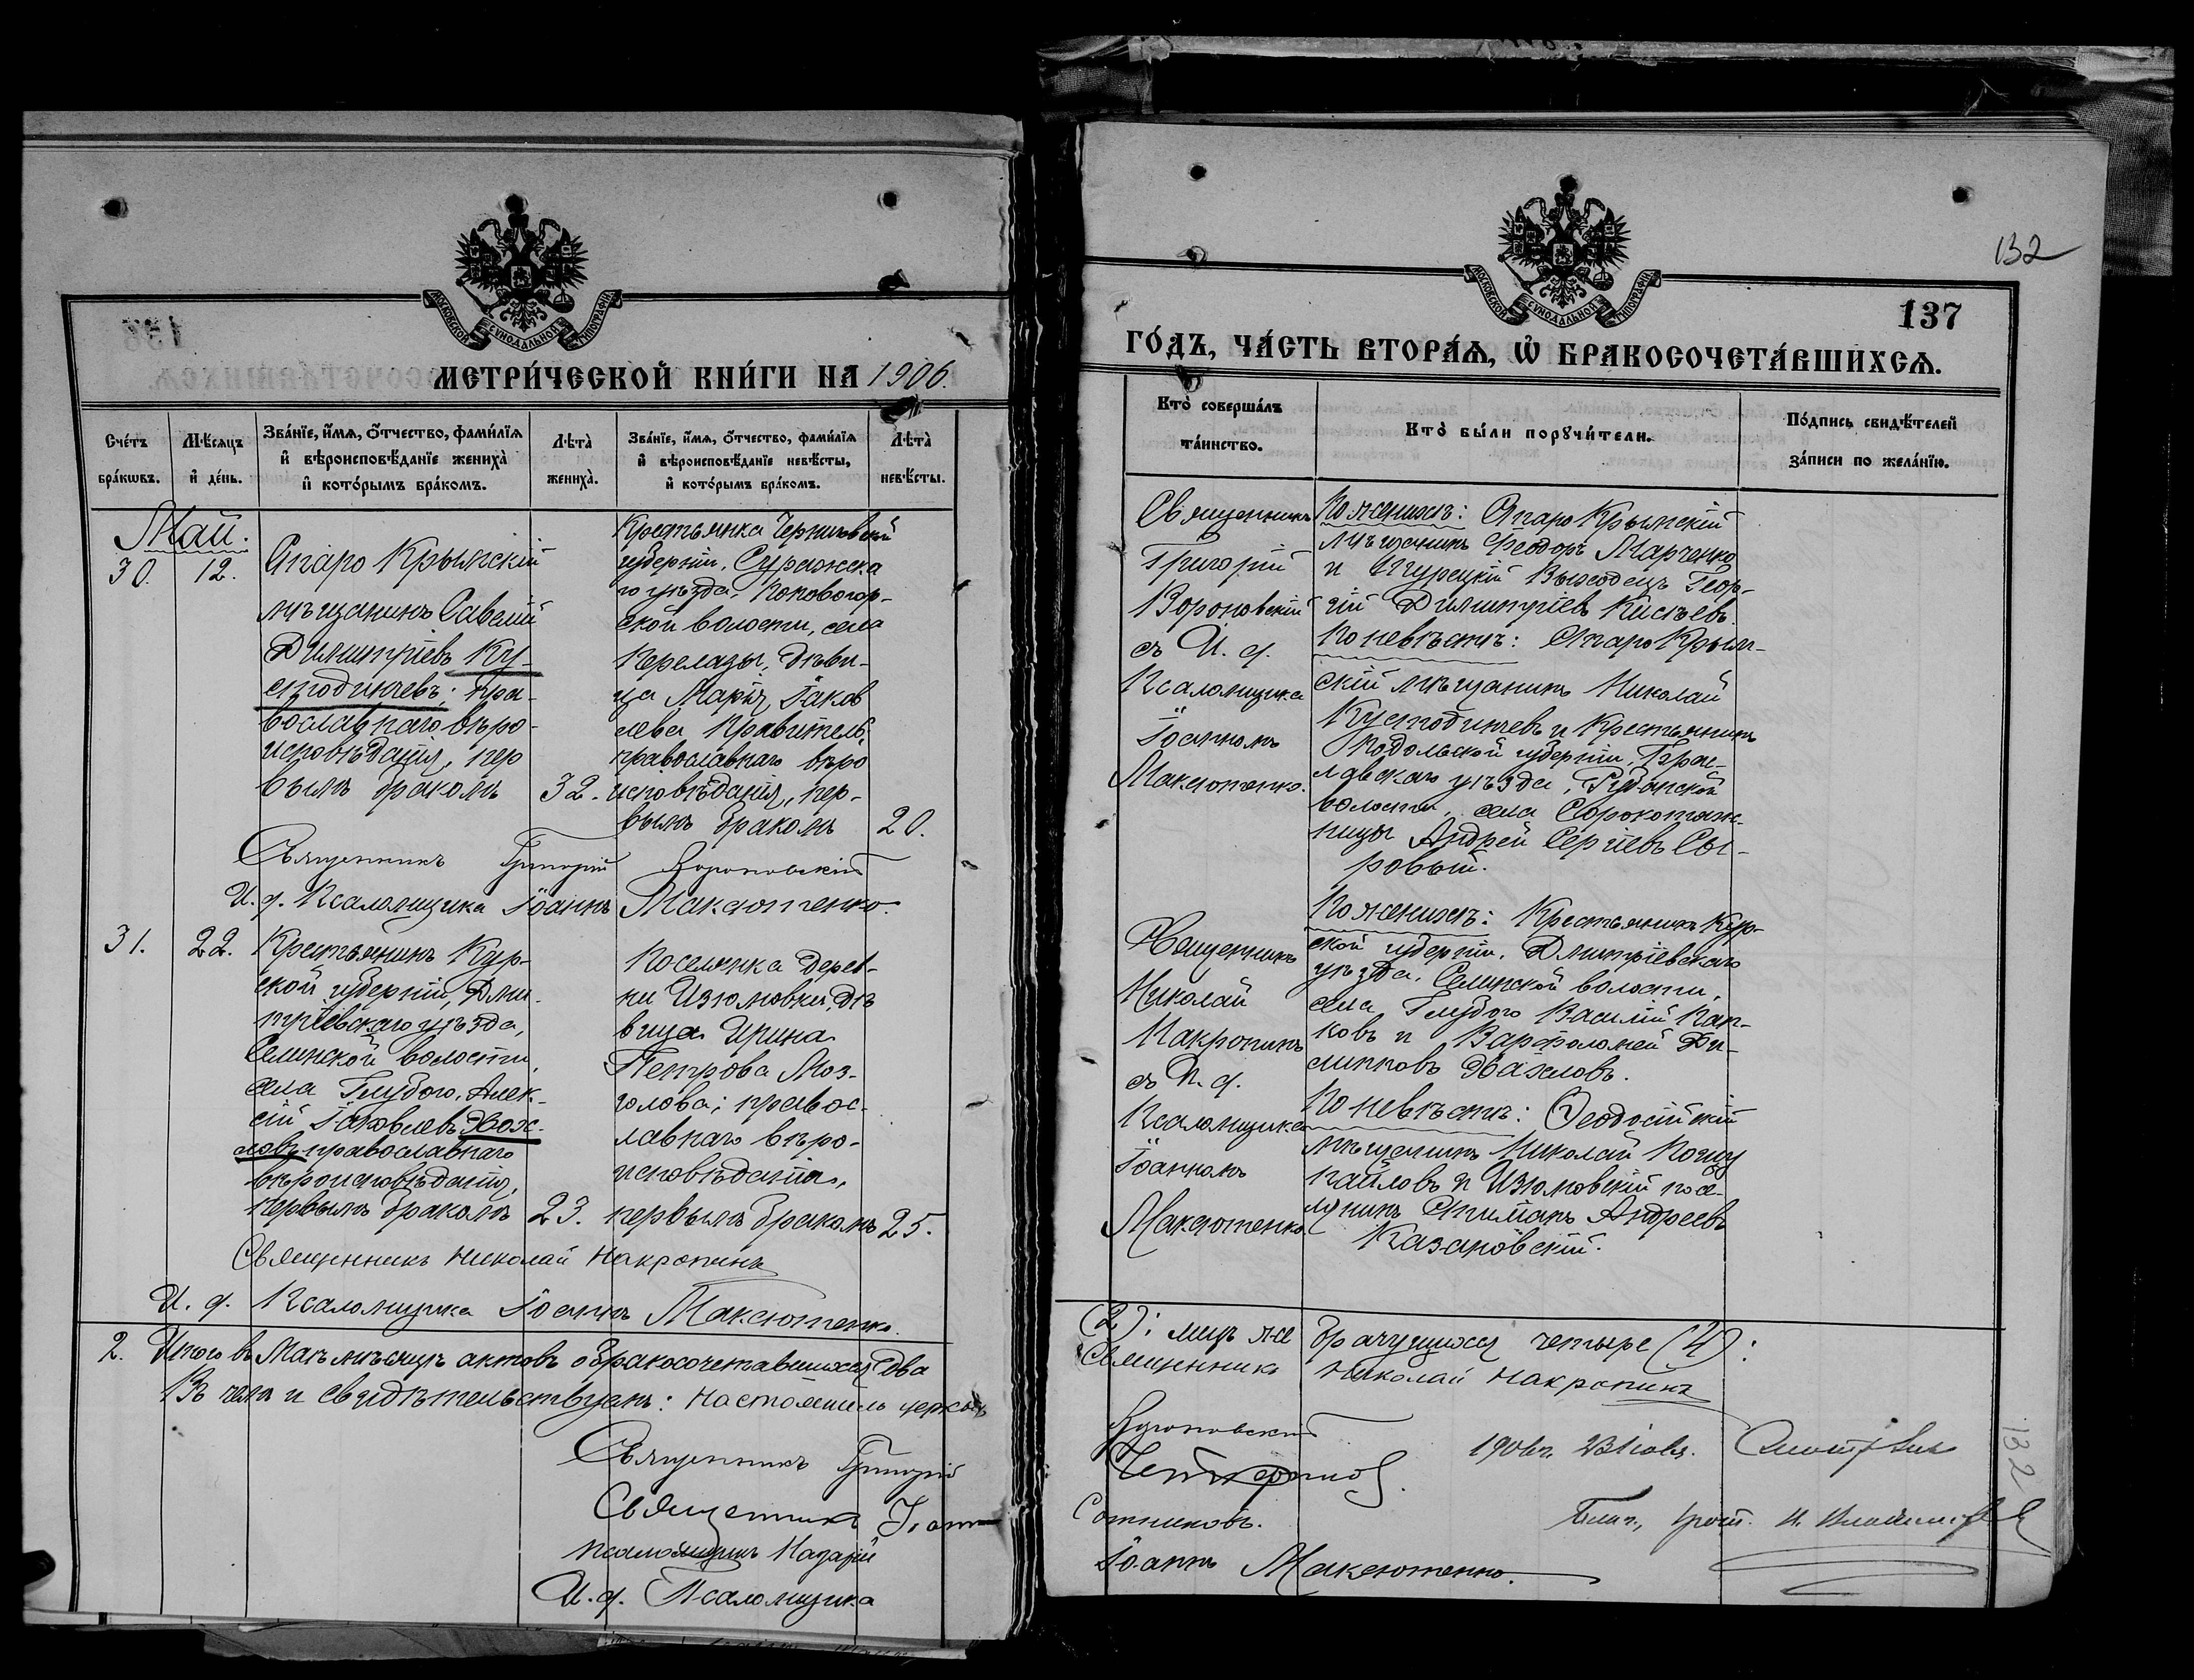 132
137
МОСКОВСКОЙ СѴНОДАЛЬНОЙ ТИПОГРАФІИ
МЕТРИ́ЧЕСКОЙ КНИ́ГИ НА 1906.
Сче́тъ бра́кѡвъ.
Мѣ́сяцъ и҆ де́нь.
Зва́нїе, и҆́мя, ѻ҆́тчество, фами́лїя
и҆ вѣроисповѣ́данїе жениха̀
и҆ кото́рымъ бра́комъ.
Лѣта̀ жениха̀.
Зва́нїе, и҆́мя, ѻ҆́тчество, фами́лїя
и҆ вѣроисповѣ́данїе невѣ́сты,
и҆ кото́рымъ бра́комъ.
Лѣта̀ невѣ́сты.
Май.
30. 12.
Старо Крымскій
мѣщанинъ Савелій
Димитріевъ Ку-
стодинчевъ; пра-
вославнаго вѣро-
исповѣданія, пер
вымъ бракомъ
32.
Крестьянка Черниговской
губерніи, Суражска
го уѣзда, Поповогор-
ской волости, села
Перелазы, дѣви-
ца Марія Іаков
лева Правитель,
православнаго вѣро
исповѣданія, пер-
вымъ бракомъ
20.
Священникъ Григорій Вороновскій
И. д. Псаломщика Іоаннъ Максютенко.
31. 22.
Крестьянинъ Кур-
ской губерніи, Дми-
тріевскаго уѣзда,
Селинской волости,
села Глубого, Алек-
сій Іаковлевъ
ловъ православнаго
вѣроисповѣданія,
первымъ бракомъ
23.
Поселянка дерев-
ни Изюмовки, дѣ
вица Ирина
Петрова Моз-
голова; правос-
лавнаго вѣро-
исповѣданія,
первымъ бракомъ
25.
Священникъ Николай Макропинъ
И. д. Псаломщика Іоаннъ Максютенко.
2. Итого въ Маѣ мѣсяцѣ актовъ о бракосочетавшихся два
Въ чемъ и свидѣтельствуемъ: Настоятель церкви
Священникъ Григорій
Священникъ
псаломщикъ Назарій
И. д. Псаломщика
МОСКОВСКОЙ СѴНОДАЛЬНОЙ ТИПОГРАФІИ
ГО́ДЪ, ЧА́СТЬ ВТОРА́Ѧ, Ѽ БРАКОСОЧЕТА́ВШИХСѦ.
Кто̀ соверша́лъ
та́инство.
Кто̀ бы́ли порꙋчи́тели.
По́дпись свидѣ́телей
за́писи по жела́нїю.
Священникъ
Григорій
Вороновскій
съ И. д.
Псаломщика
Іоанномъ
Максютенко.
По женихѣ: Старо Крымскій
мѣщанинъ Феодоръ Марченко
и Турецкій выходецъ Геор-
гій Димитріевъ Кисѣевъ.
По невѣстѣ: Старо Крым-
скій мѣщанинъ Николай
Кустодинчевъ и крестьянинъ
Подольской губерніи, Брац-
лавскаго уѣзда,
волости, села Сорокотяж-
ницы Андрей Сергіевъ Сы-
ровый.
Священникъ
Николай
Макропинъ
съ И. д.
Псаломщика
Іоанномъ
Максютенко.
По женихѣ: Крестьянинъ Кур-
ской губерніи, Дмитріевскаго
уѣзда, Селинской волости,
села Глубого Василій Пап-
ковъ и Варфоломей
По невѣстѣ: Ѳеодосійскій
мѣщанинъ Николай
и Изюмовскій посе-
лянинъ Стиліанъ Андреевъ
Казановскій.
(2): лицъ же брачущихся четыре (4):
Священникъ Николай Макропинъ
Вороновскій
Сотниковъ.
Іоаннъ Максютенко.